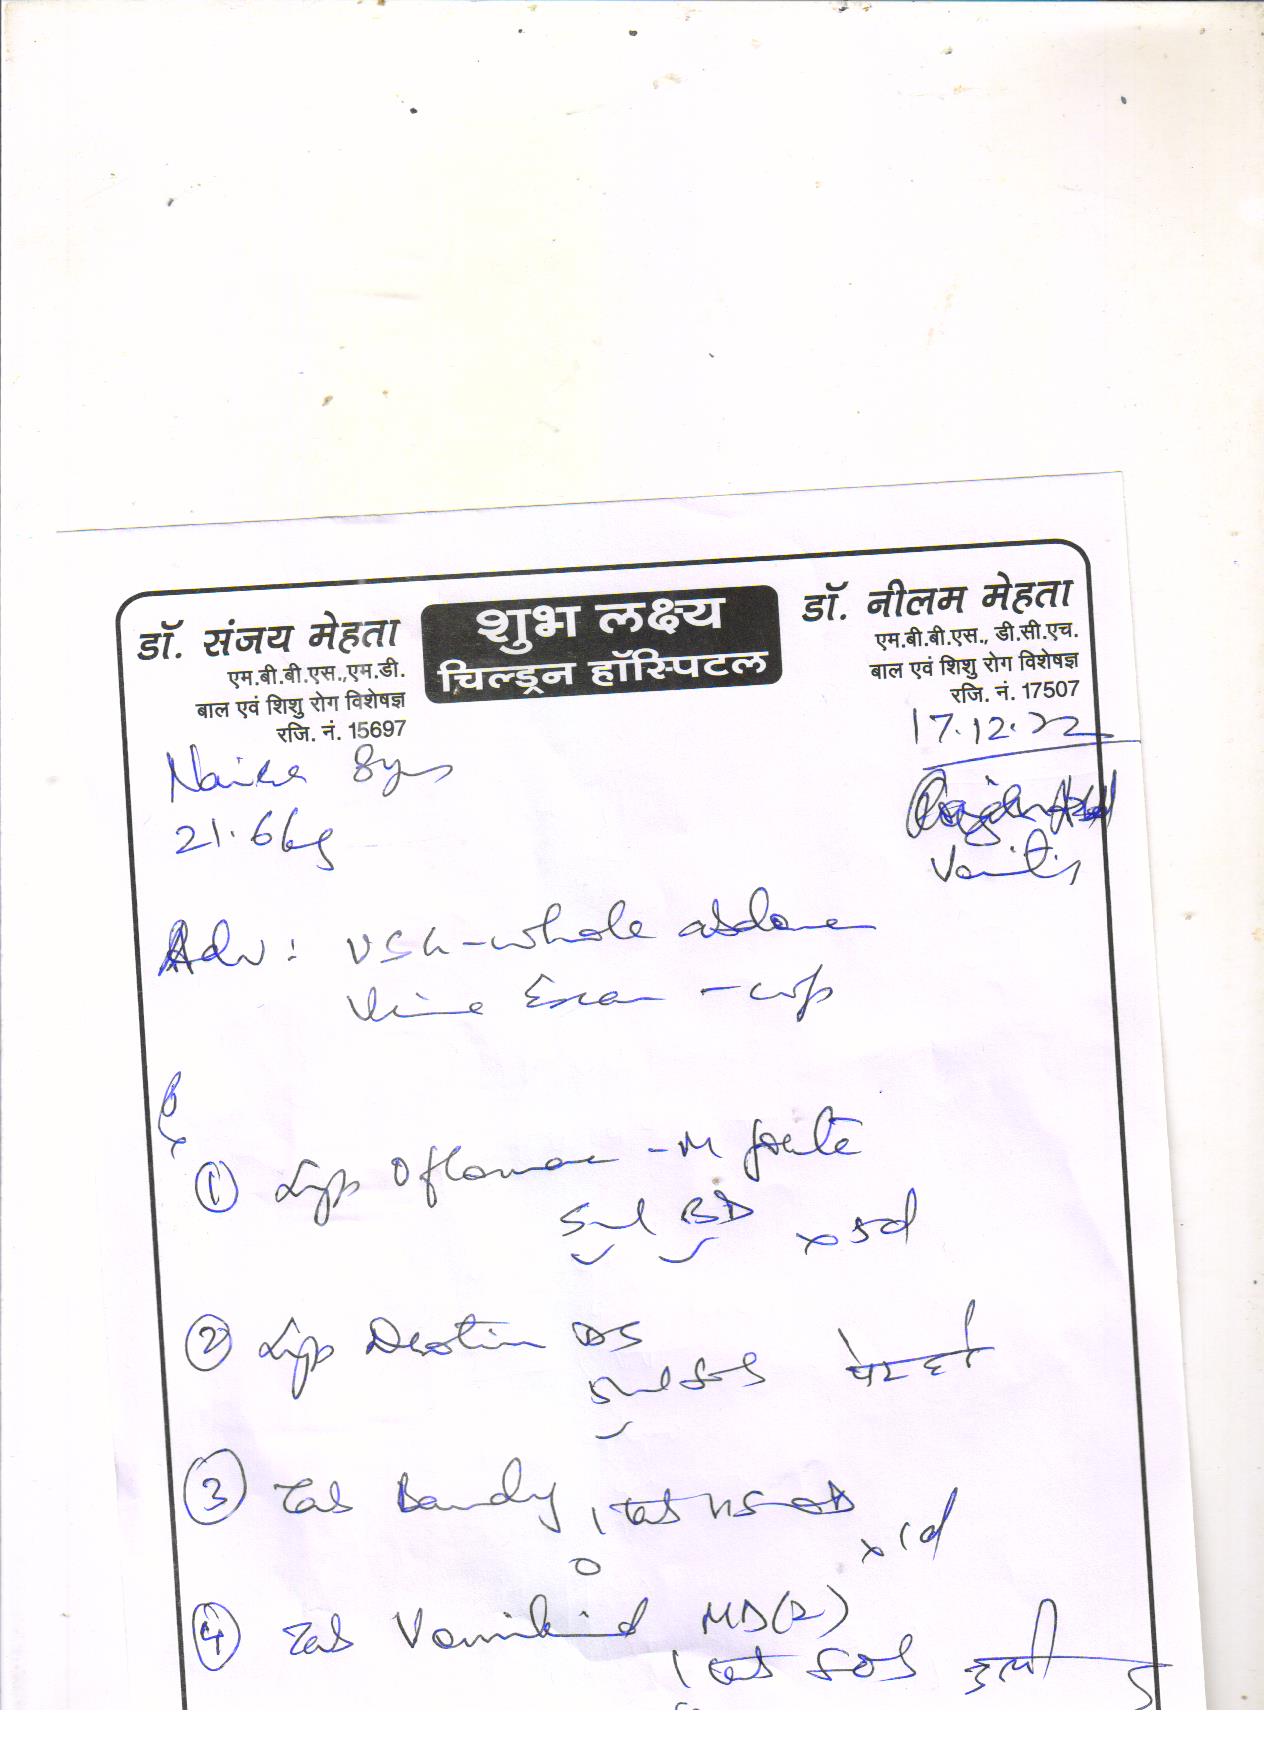 डॉ. संजय मेहता
एम.बी.बी.एस.,एम.डी.
बाल एवं शिशु रोग विशेषज्ञ
रजि. नं. 15697
शुभ लक्ष्य
चिल्ड्रन हॉस्पिटल
डॉ. नीलम मेहता
एम.बी.बी.एस., डी.सी.एच.
बाल एवं शिशु रोग विशेषज्ञ
रजि. नं. 17507
17.12.22
8yrs
21.6kg
Adv: USG-whole abdomen
Urine Exam -
Rx
① Syp Oflomac -M forte
5ml BD x 5d
② Syp DS
5ml SOS पेट दर्द
③ Tab Bandy 1 tab HS OD
x 1d
④ Tab Vomikind MD(2)
1 tab SOS उल्टी